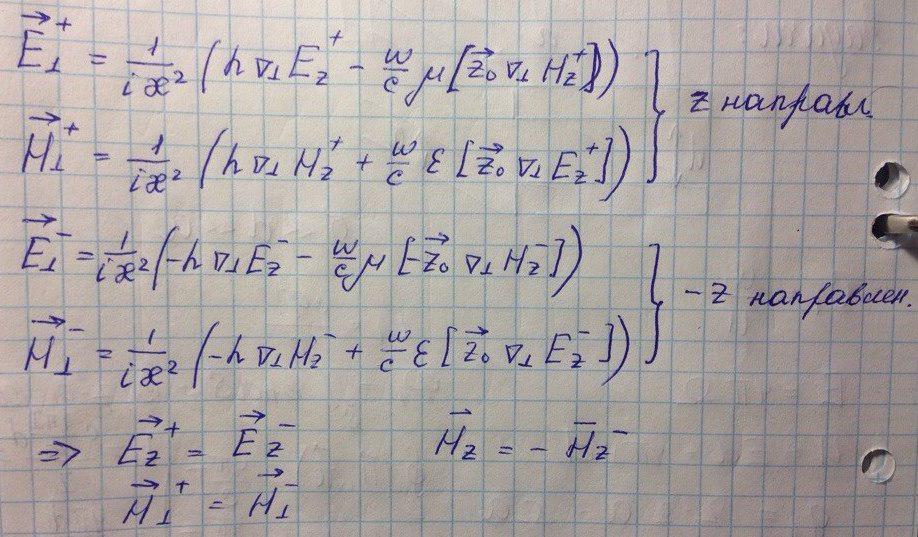 E⃗⊥⁺ = 1/(iæ²) (h ∇⊥ E_z⁺ − ω/c μ [z⃗₀ ∇⊥ H_z⁺])
H⃗⊥⁺ = 1/(iæ²) (h ∇⊥ H_z⁺ + ω/c ε [z⃗₀ ∇⊥ E_z⁺]) } z направл.
E⃗⊥⁻ = 1/(iæ²) (−h ∇⊥ E_z⁻ − ω/c μ [−z⃗₀ ∇⊥ H_z⁻])
H⃗⊥⁻ = 1/(iæ²) (−h ∇⊥ H_z⁻ + ω/c ε [z⃗₀ ∇⊥ E_z⁻]) } −z направлен.
=> E⃗_z⁺ = E⃗_z⁻ H⃗_z = − H⃗_z⁻
H⃗⊥⁺ = H⃗⊥⁻